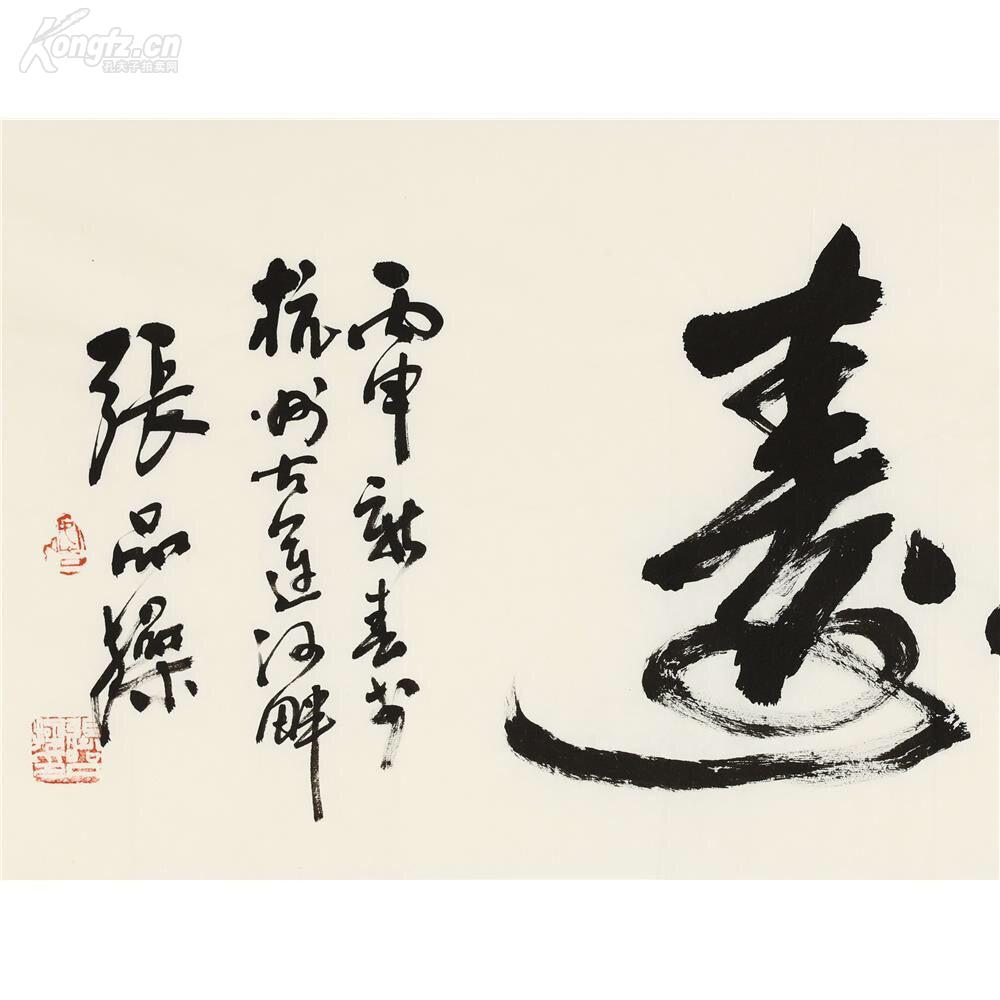 Kongfz.cn
孔夫子拍卖网
遠
丙申新春书
杭州古運河畔
張品操